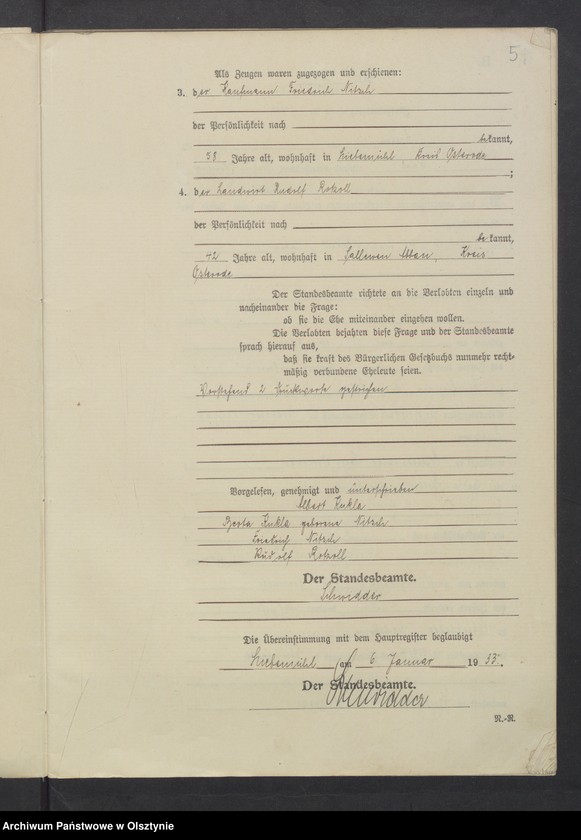 5
Als Zeugen waren zugezogen und erschienen:
3. der Kaufmann Friedrich Nitsch
der Persönlichkeit nach
bekannt,
58 Jahre alt, wohnhaft in Liebemühl Kreis Osterode
;
4. der Landwirt Rudolf Rokoll
der Persönlichkeit nach
bekannt,
42 Jahre alt, wohnhaft in Kreis
Osterode
Der Standesbeamte richtete an die Verlobten einzeln und
nacheinander die Frage:
ob sie die Ehe miteinander eingehen wollen.
Die Verlobten bejahten diese Frage und der Standesbeamte
sprach hierauf aus,
daß sie kraft des Bürgerlichen Gesetzbuchs nunmehr recht-
mäßig verbundene Eheleute seien.
Vorstehend 2 Druckworte gestrichen
Vorgelesen, genehmigt und unterschrieben
Albert Kukla
Berta Kukla geborene Nitsch
Friedrich Nitsch
Rudolf Rokoll
Der Standesbeamte.
Die Übereinstimmung mit dem Hauptregister beglaubigt
Liebemühl am 6 Januar 1933.
Der Standesbeamte.
N.-R.
Archiwum Państwowe w Olsztynie